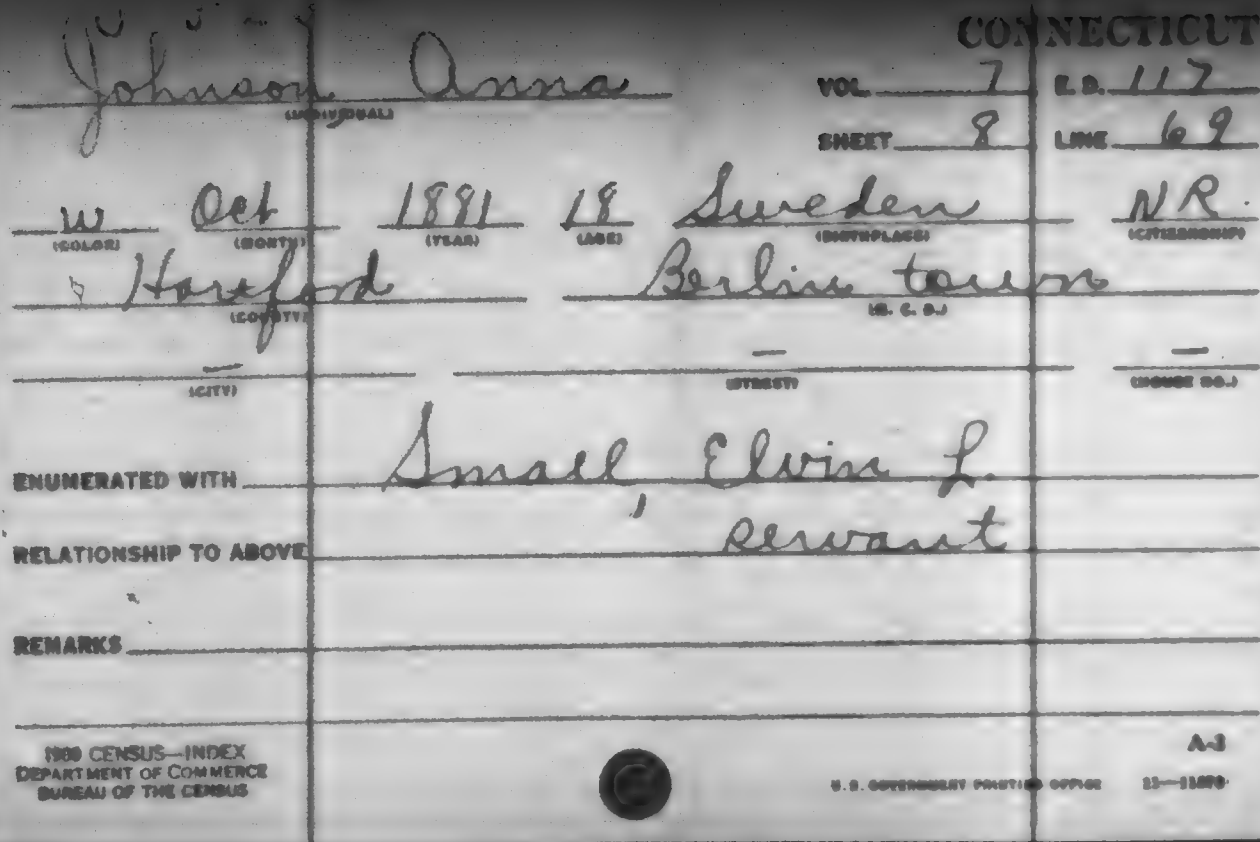 CONNECTICUT
Johnson Anna
(INDIVIDUAL)
VOL. 7 E.D. 117
SHEET 8 LINE 69
W Oct 1881 18 Sweden NR.
(COLOR) (MONTH) (YEAR) (AGE) (BIRTHPLACE) (CITIZENSHIP)
Hartford Berlin town
(COUNTY) (M. C. D.)
— — —
(CITY) (STREET) (HOUSE NO.)
ENUMERATED WITH Small, Elvin L.
RELATIONSHIP TO ABOVE servant
REMARKS
1900 CENSUS—INDEX
DEPARTMENT OF COMMERCE
BUREAU OF THE CENSUS
A-1
U.S. GOVERNMENT PRINTING OFFICE